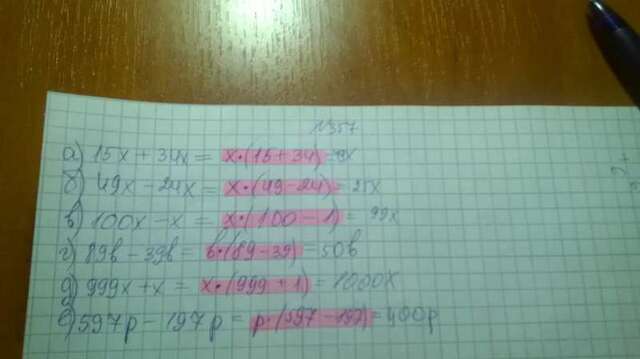 №357
а) 15x + 34x = x·(15 + 34) = 49x
б) 49x - 24x = x·(49 - 24) = 25x
в) 100x - x = x·(100 - 1) = 99x
г) 89b - 39b = b·(89 - 39) = 50b
д) 999x + x = x·(999 + 1) = 1000x
е) 597p - 197p = p·(597 - 197) = 400p